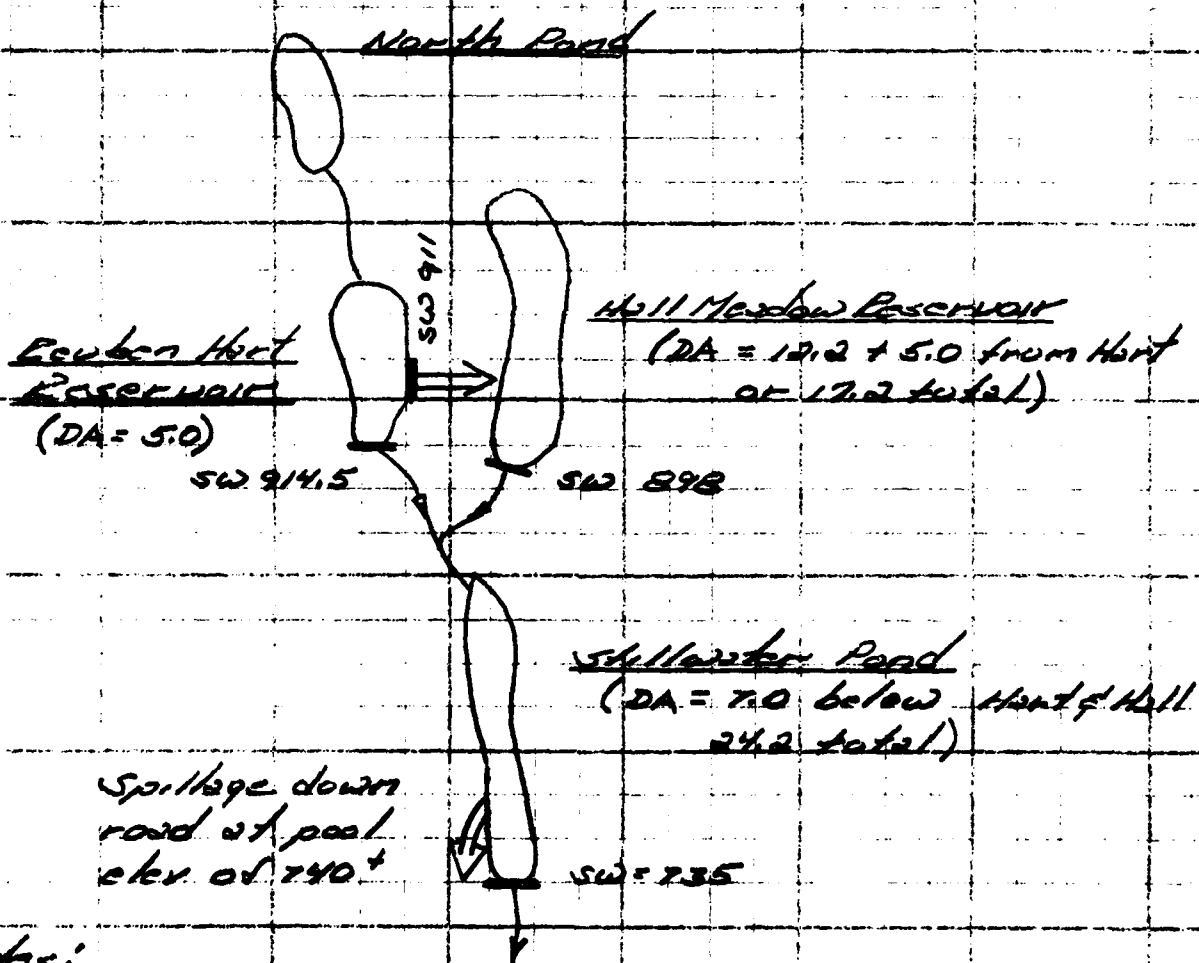 North Pond
SW 911
Hall Meadow Reservoir
(DA = 12.2 + 5.0 from Hart
or 17.2 total)
Reuben Hart
Reservoir
(DA = 5.0)
SW 914.5
SW 898
Stillwater Pond
(DA = 7.0 below Hart & Hall
24.2 total)
Spillage down
road at pool
elev of 740±
SW = 735